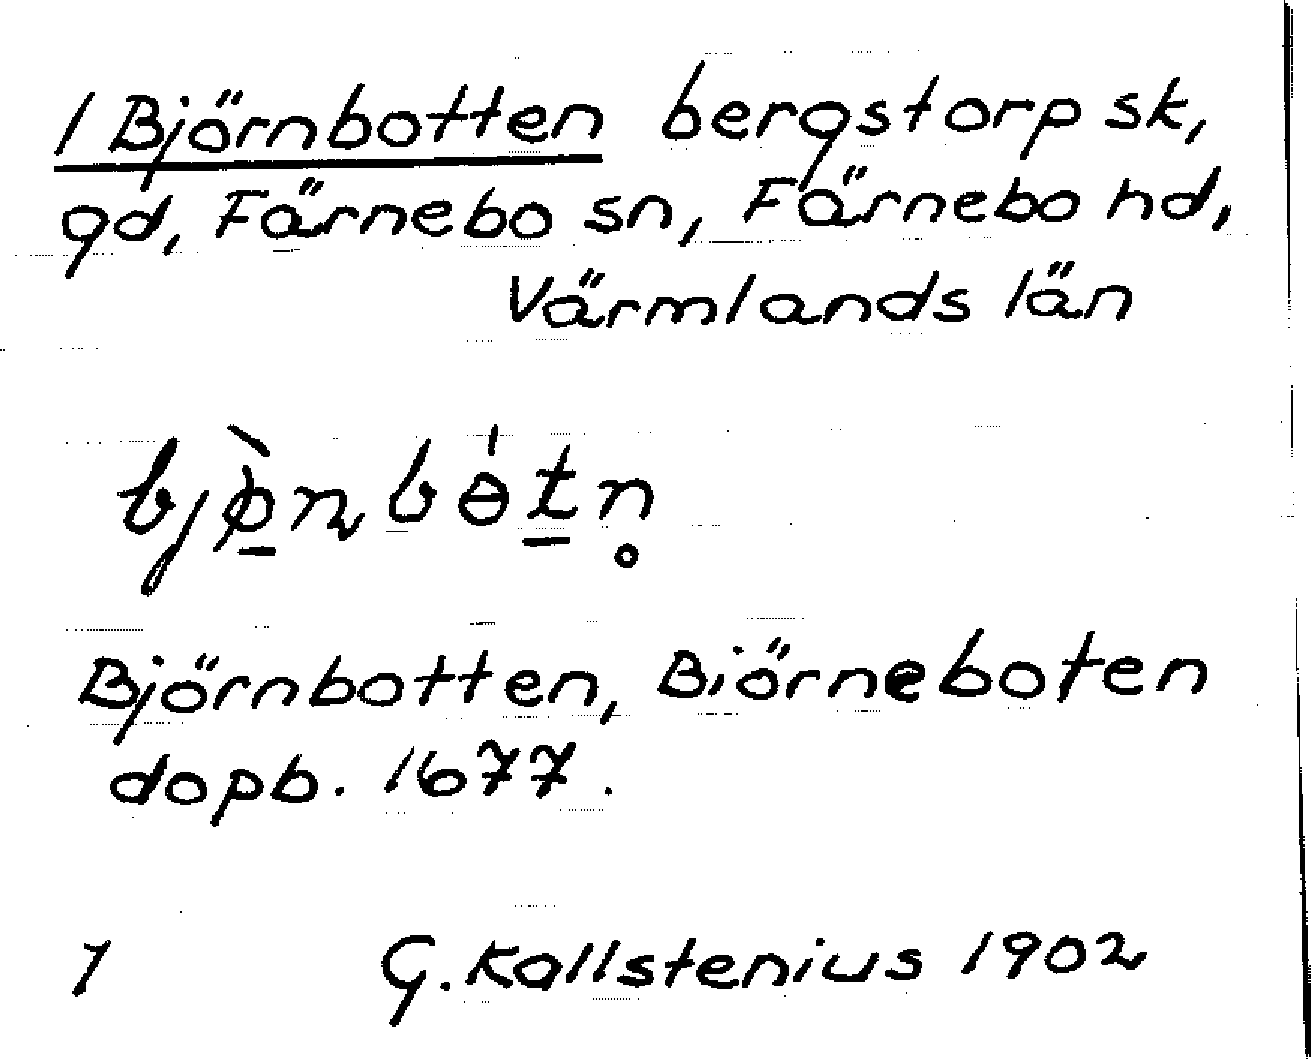 1 Björnbotten bergstorp sk,
gd, Färnebo sn, Färnebo hd,
Värmlands län
bjø̱̀nbɵ́ṯn̥
Björnbotten, Biörneboten
dopb. 1677.
7 G. Kallstenius 1902